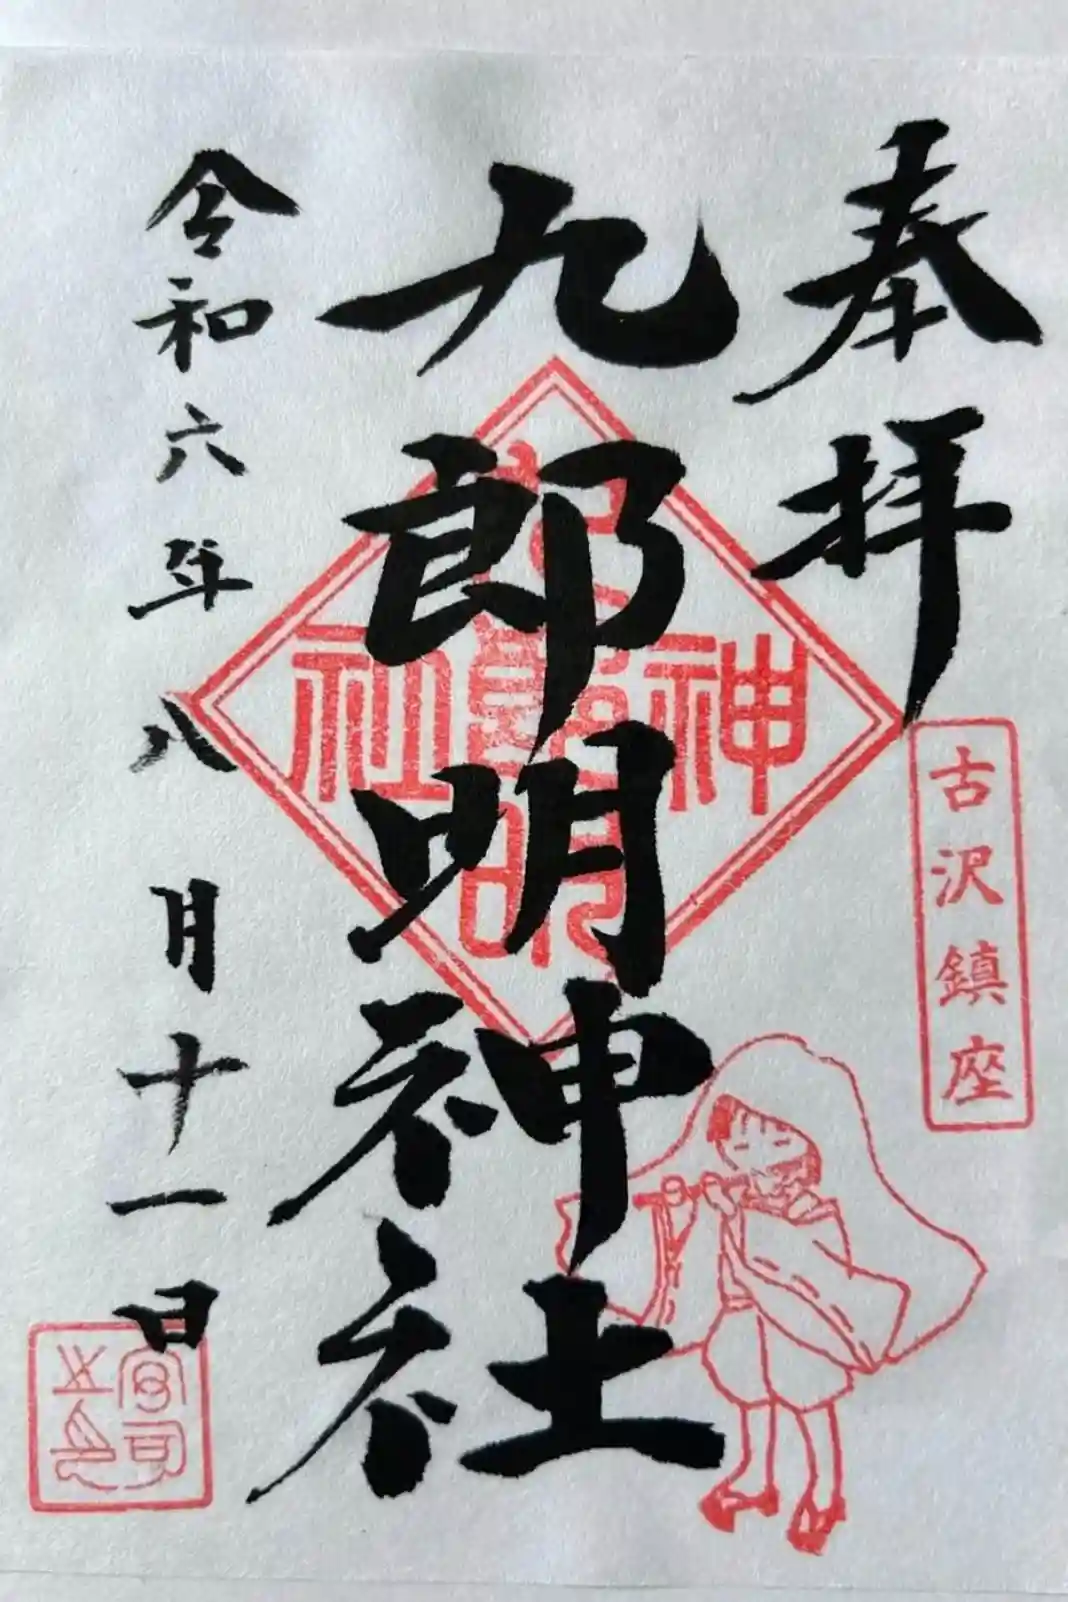 奉拝
古沢鎮座
九郎明神社
神
九郎明
社
令和六年八月十一日
宮司
之印